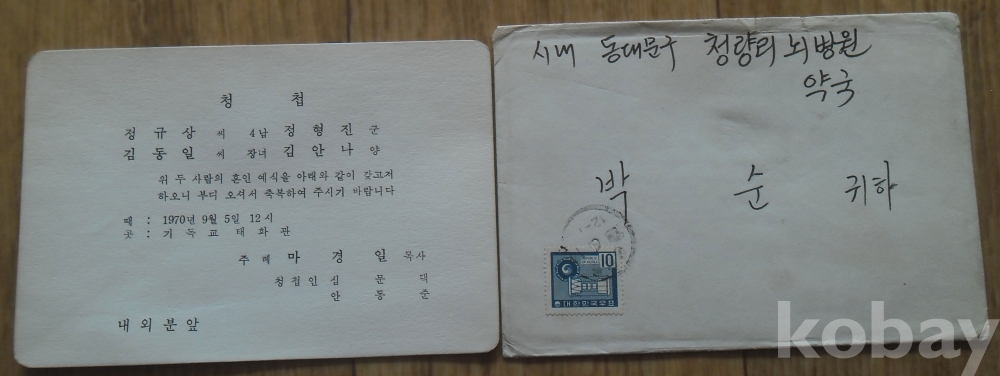 청 첩
정 규 상 씨 4남 정 형 진 군
김 동 일 씨 장녀 김 안 나 양
위 두 사람의 혼인 예식을 아래와 같이 갖고저
하오니 부디 오셔서 축복하여 주시기 바랍니다
때 : 1970년 9월 5일 12시
곳 : 기 독 교 태 화 관
주 례 마 경 일 목사
청첩인 심 문 택
안 동 준
내 외 분 앞
시내 동대문구 청량리 뇌병원
약국
박 순 귀하
10
대한민국우표
kobay